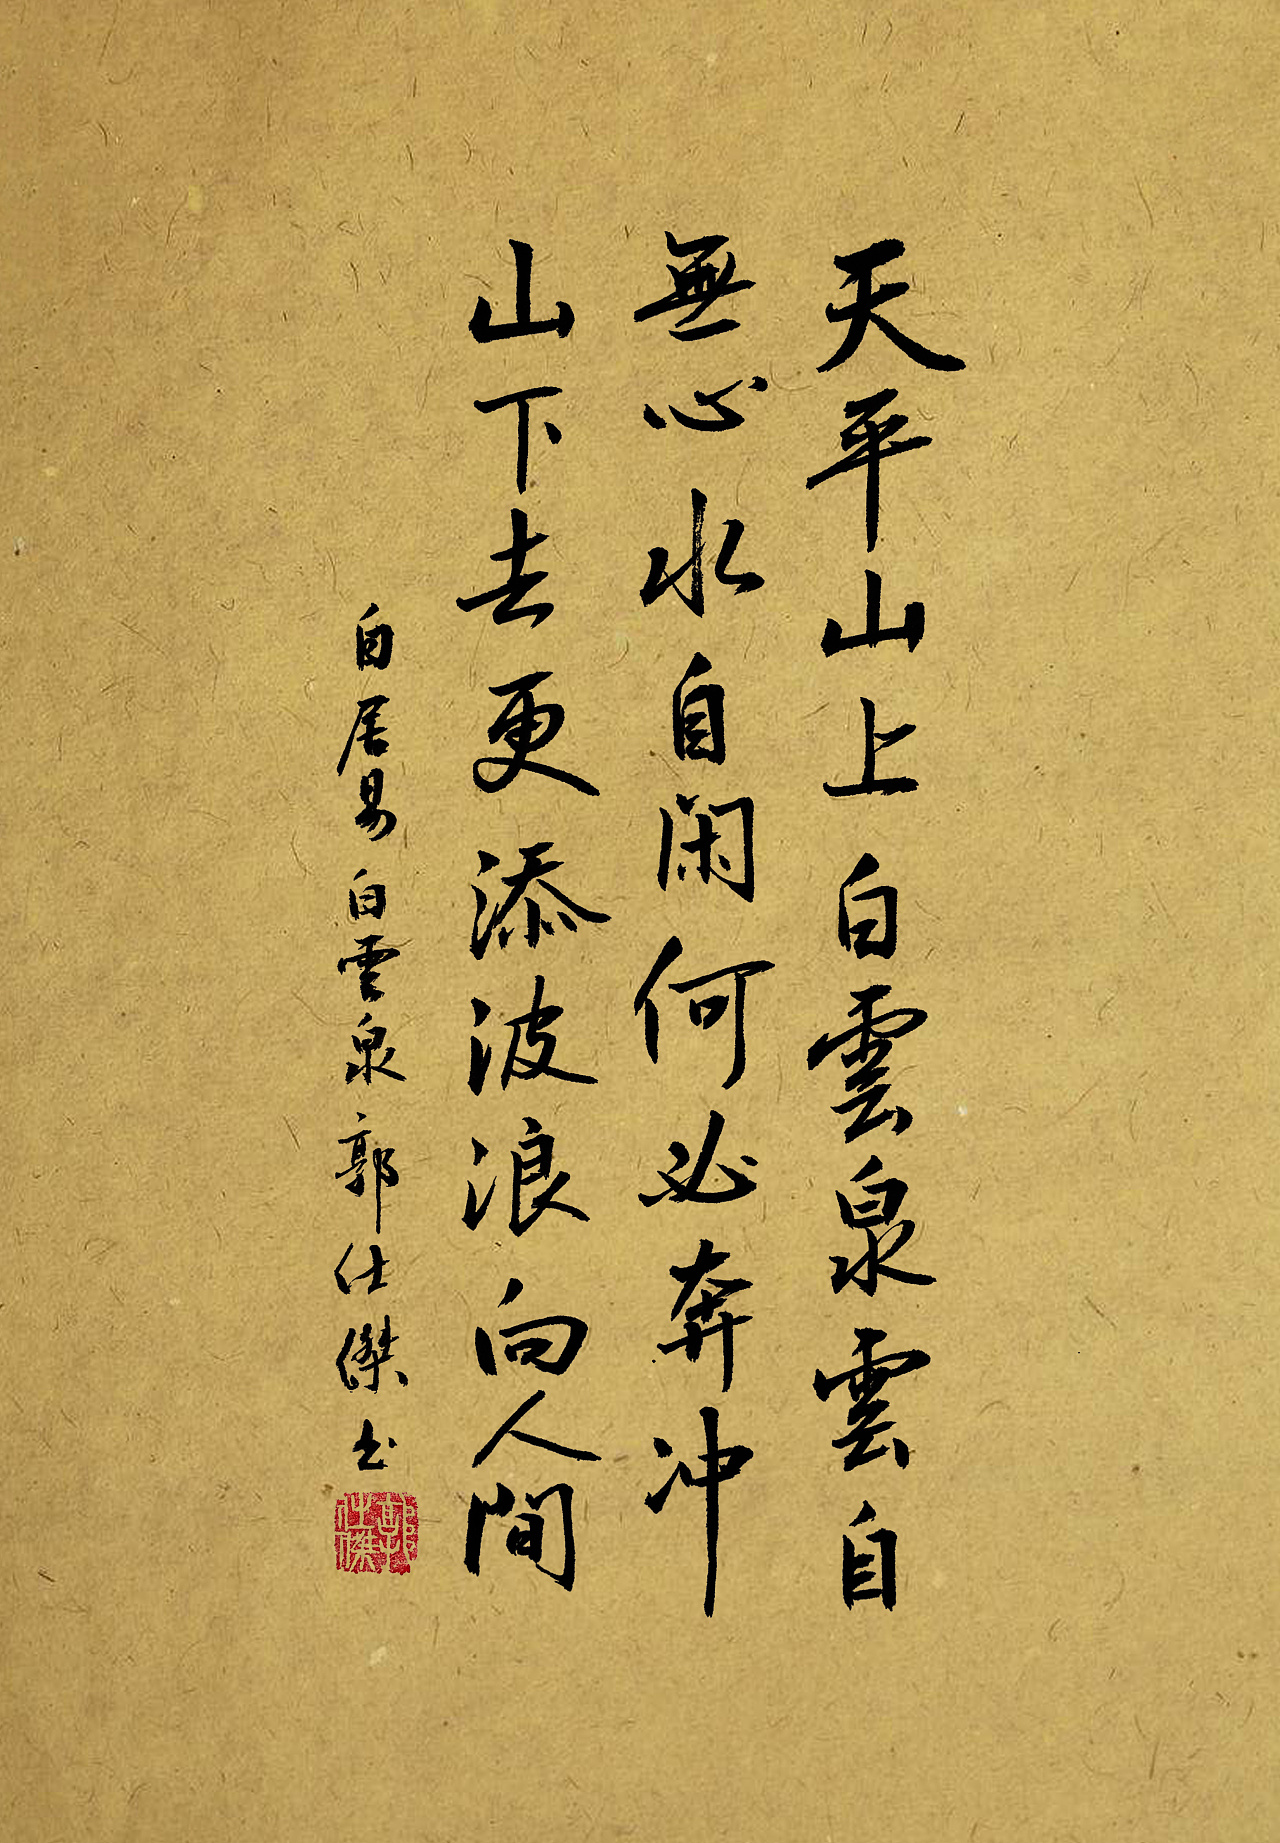 天平山上白雲泉雲自
無心水自閑何必奔冲
山下去更添波浪向人間
白居易白雲泉郭仕傑书
郭仕傑